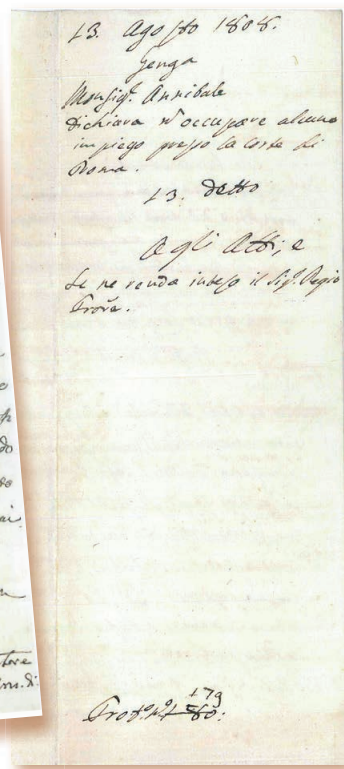 13. Agosto 1808.
Genga
Monsigr. Annibale
dichiara n occupare alcuno
impiego presso la Corte di
Roma.
13. detto
Agli Atti; e
se ne renda inteso il Sigr. Regio
Prot. N.
179
80.
do
tore